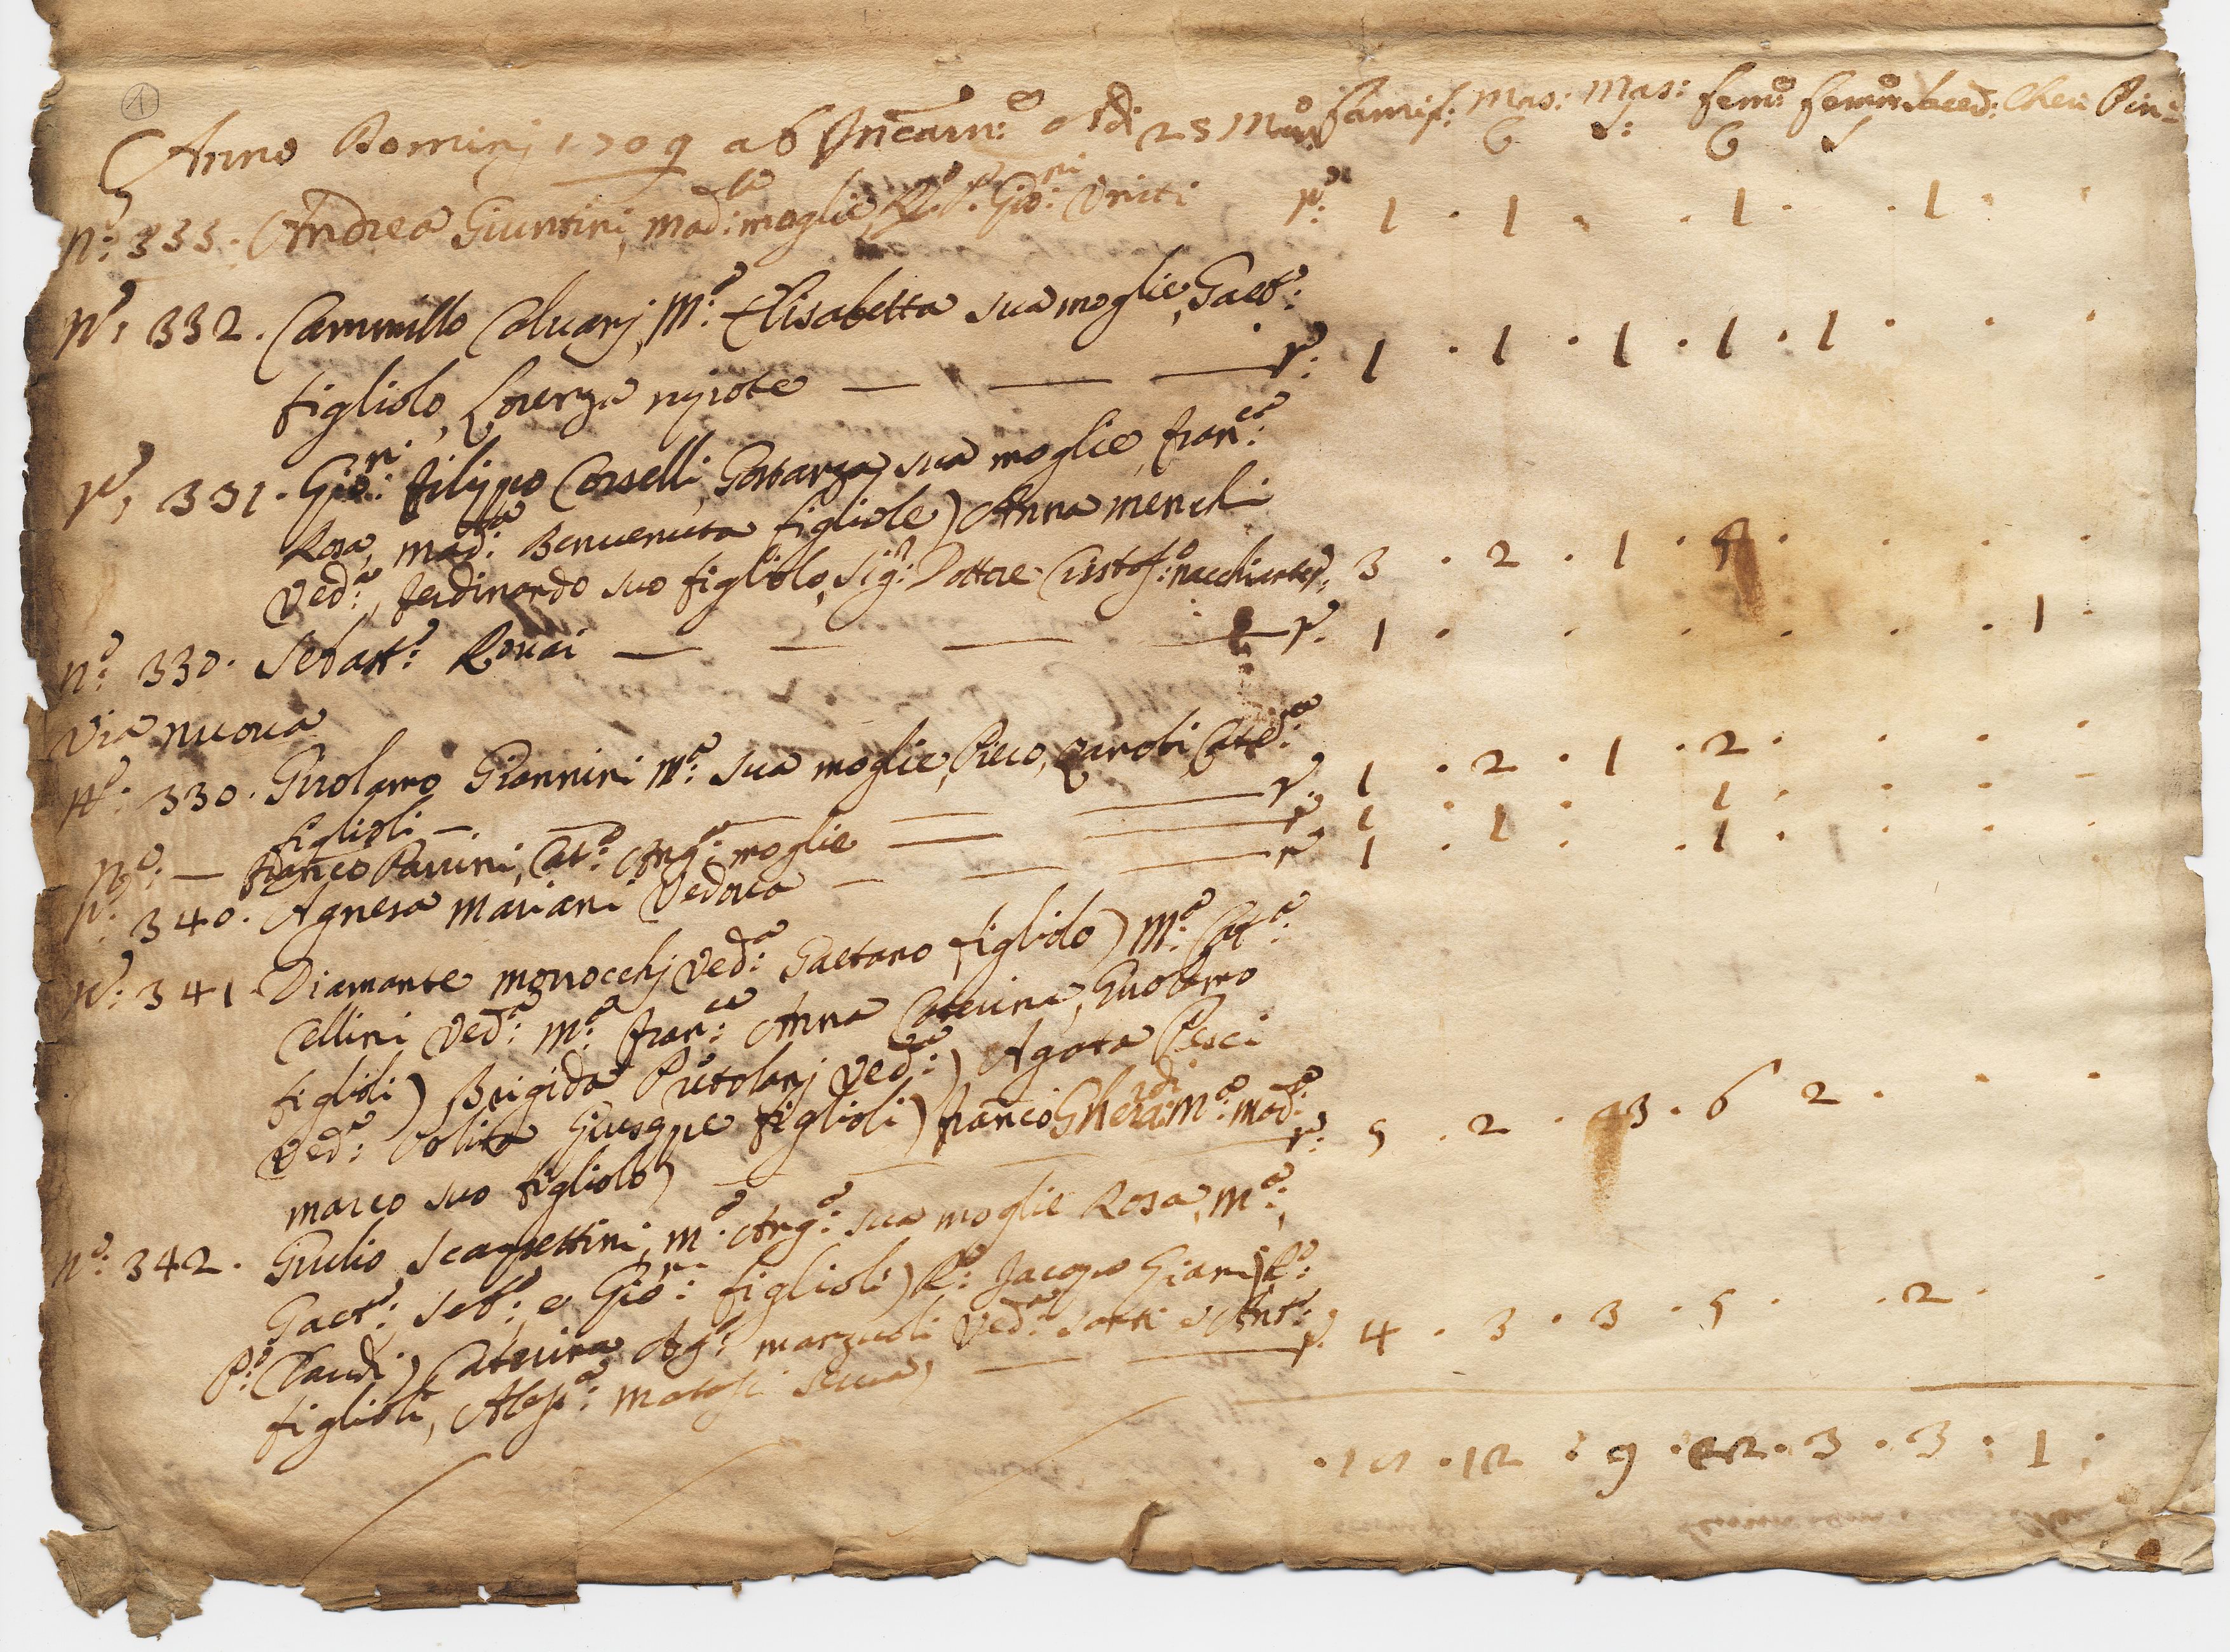 1
Anno Domini 1709 ab Incarn:e a dì 25 Marzo Famig: Mas: Mas: fem:e fem:e Saced: Cheri Pin:
C S: C S
N:o 333. Andrea Giuntini, Mad:na moglie, R:o P: Gio:ni Vniti p: 1 . 1 . . 1 . . 1 .
N:o 332. Cammillo Caluanj, M:a Elisabetta sua moglie, Gaet:o
figliolo, Lorenza nipote — — — p: 1 . 1 . 1 . 1 . 1 . . .
N:o 331. Gio:ni Filippo Corselli, Gostanza sua moglie, fran:ca
Rosa, Mad:na Benuenuta figliole) Anna Menchi
Ved:a, Ferdinando suo figliolo, Sig:r Dottore Cristof:o nacchianti p: 3 . 2 . 1 . 5 . . . .
N:o 330. Sebast:o Rouai — — — — p: 1 . . . . . . 1 .
Via nuoua
N:o 330. Girolamo Giannini M:a sua moglie, Piero, Zanobi, Cat:a
figlioli — . — — — — p: 1 . 2 . 1 . 2 . . . .
N:o — Franco Pauini, Cat:a Ang:a moglie — — p: 1 . 1 . 1 . . . .
N:o 340. Agnesa Mariani Vedoua — — — p: 1 . . . 1 . . . .
N:o 341. Diamante Monocchj Ved:a Gaetano figliolo) M:a Cat:a
Cellini Ved:a M:a Fran:ca Anna Caterina, Girolamo
figlioli) Brigida Pistolesj Ved:a) Agata Pesci
Ved:a Polita Giuseppe figlioli) franco Gherardi M:a Mad:na
Marco suo figliolo) — — — p: 5 . 2 . 3 . 6 2 . . .
N:o 342. Giulio Scappettini, M:a Ang:a sua moglie Rosa, M:a,
Gaet:o, Seb:o, e Gio:ni figlioli) R:o Jacopo Giani) R:o
P:o Claudi) Caterina Ag:a marzuoli Ved:a Santi e Ant:o
figlioli, Aless:a serua) — — p: 4 . 3 . 3 . 5 . . 2 . .
. 17 . 12 . 9 . 22 . 3 . 3 . 1 .